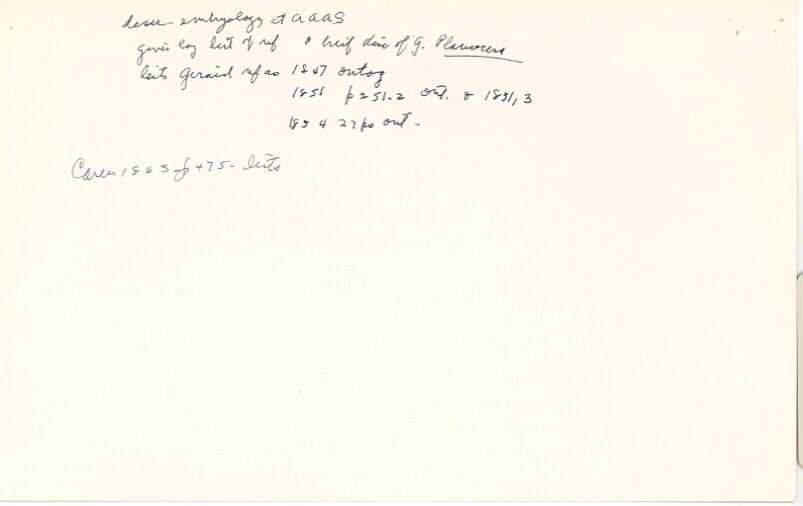 discu- embryology at AAAS
gives long list of ref & breif disc of g. Planocera
lists Girard ref as 1847 outog
1851 p 251-2 out. & 1851, 3
1854 27 ps out.
Carus 1863 p 475- lists